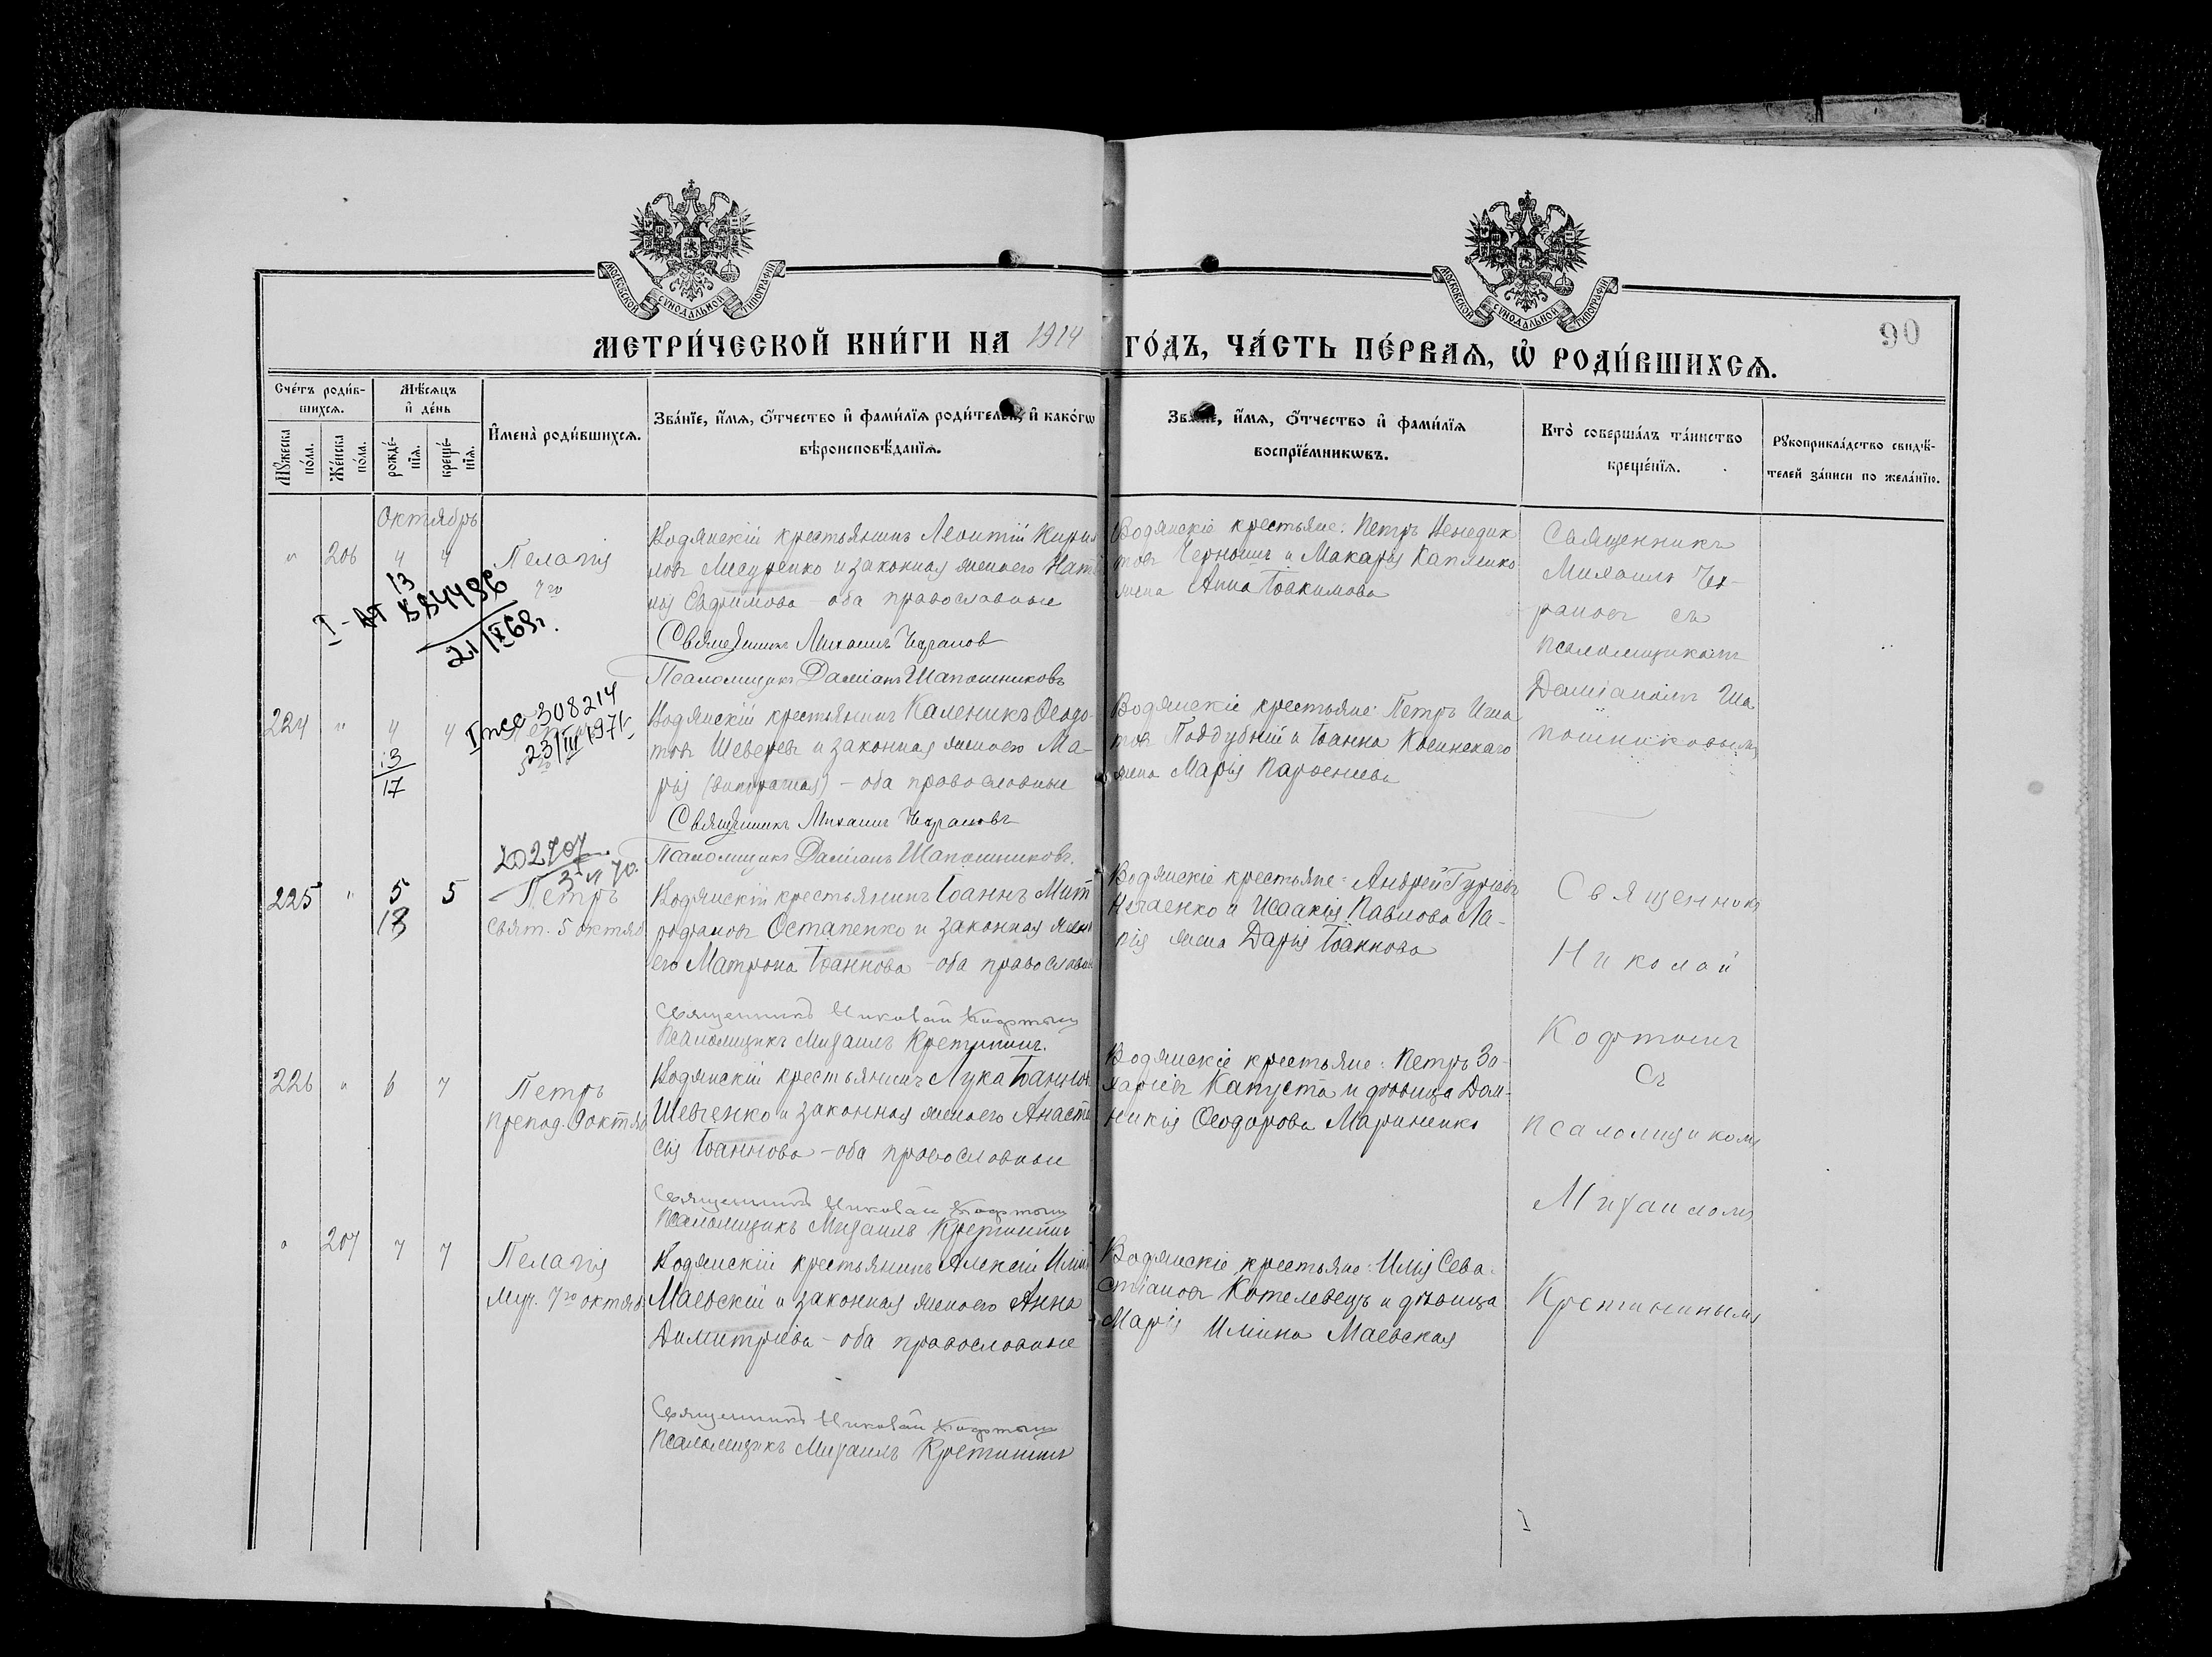 МОСКОВСКОЙ СѴНОДАЛЬНОЙ ТИПОГРАФІИ
МОСКОВСКОЙ СѴНОДАЛЬНОЙ ТИПОГРАФІИ
90
МЕТРИ́ЧЕСКОЙ КНИ́ГИ НА 1914 ГО́ДЪ, ЧА́СТЬ ПЕ́РВАѦ, Ѡ҆ РОДИ́ВШИХСѦ.
Сче́тъ роди́в-
шихсѧ.
Мѣ́сѧцъ
и҆ де́нь
И҆мена̀ роди́вшихсѧ.
Зва́нїе, и҆́мѧ, ѻ҆́тчество и҆ фами́лїѧ роди́телей, и҆ како́гѡ
вѣроисповѣ́данїѧ.
Зва́нїе, и҆́мѧ, ѻ҆́тчество и҆ фами́лїѧ
воспрїе́мникѡвъ.
Кто̀ соверша́лъ та́инство
креще́нїѧ.
Рꙋкоприкла́дство свидѣ́-
телей за́писи по жела́нїю.
Мꙋ́жеска
по́ла.
Же́нска
по́ла.
рожде́-
нїѧ.
креще́-
нїѧ.
Октябрь
" 206 4 4 Пелагія
7го
13
I-АТ ВВ4486
21/IX 69г.
Водянскій крестьянинъ Леонтій Кирил
ловъ Месуренко и законная жена его Ната
лія Евфимова – оба православные
Священникъ Михаилъ Чехрановъ
Псаломщикъ Даміанъ Шапошниковъ
Водянскіе крестьяне: Петръ Венедик
товъ Черномъ и Макарія Капленко
жена Анна Іоакимова
Священникъ
Михаилъ Чех-
рановъ съ
псаломщикомъ
Даміаномъ Ша
пошниковымъ
224 " 4 4
13
17
308214
23/III 1971
Водянскій крестьянинъ Каленикъ Ѳеодо-
товъ Шеверевъ и законная жена его Ма-
рія – оба православные
Священникъ Михаилъ Чехрановъ
Псаломщикъ Даміанъ Шапошниковъ.
Водянскіе крестьяне: Петръ Игна
товъ Поддубній и Іоанна Косинскаго
жена Марія Парѳеніева
202707
3 VI 70.
225 " 5 5 Петръ
18
Свят. 5 октяб
Водянскій крестьянинъ Іоаннъ Мит
рофановъ Остапенко и законная жена
его Матрона Іоаннова – оба православн
Священникъ Николай Кофтынъ
Псаломщикъ Михаилъ Кретининъ.
Водянскіе крестьяне: Андрей Гуріевъ
Нечаенко и Исаакія Павлова Ла-
пія жена Дарія Іоаннова
Священникъ
Николай
Кофтынъ
Съ
псаломщикомъ
Михаиломъ
Кретининымъ
226 " 6 7 Петръ
препод. 9 октяб
Водянскій крестьянинъ Лука Іоанновъ
Шевченко и законная жена его Анаста
сія Іоаннова – оба православные
Священникъ Николай Кофтынъ
Псаломщикъ Михаилъ Кретининъ
Водянскіе крестьяне: Петръ За-
харіевъ Капуста и дѣвица Дом-
никія Ѳеодорова Мариненко
" 207 7 7 Пелагія
муч. 7го октяб
Водянскій крестьянинъ Алексій Иліинъ
Маевскій и законная жена его Анна
Димитріева – оба православные
Священникъ Николай Кофтынъ
Псаломщикъ Михаилъ Кретининъ
Водянскіе крестьяне: Илія Сева-
стіановъ Котелевецъ и дѣвица
Марія Иліина Маевская